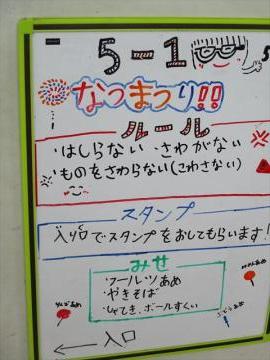 5-1
なつまつり!!
ルール
・はしらない・さわがない
・ものをさわらない(こわさない)
スタンプ
入り口でスタンプをおしてもらいます!
みせ
・フールツあめ
・やきそば
・しゃてき、ボールすくい
りんごあめ
ぶどうあめ
← 入口